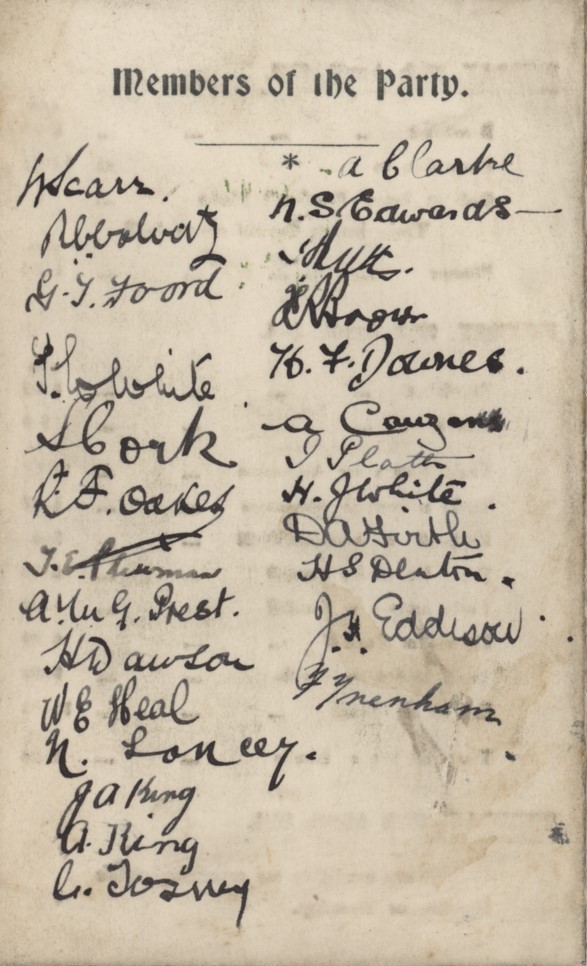 Members of the Party.
W Scarr.
G. T. Foord
White
S Cork
R. F. Oakes
T. E.
A. Mc G. Prest.
H Dawson
W E Heal
N. Loncey.
J A King
A. King
C. Tosney
* A Clarke
N. S. Edwards
Brown
H. F. Downes.
A Cauzens
I Platts
H. J White.
D A Firth
H S Denton.
J. H. Eddison